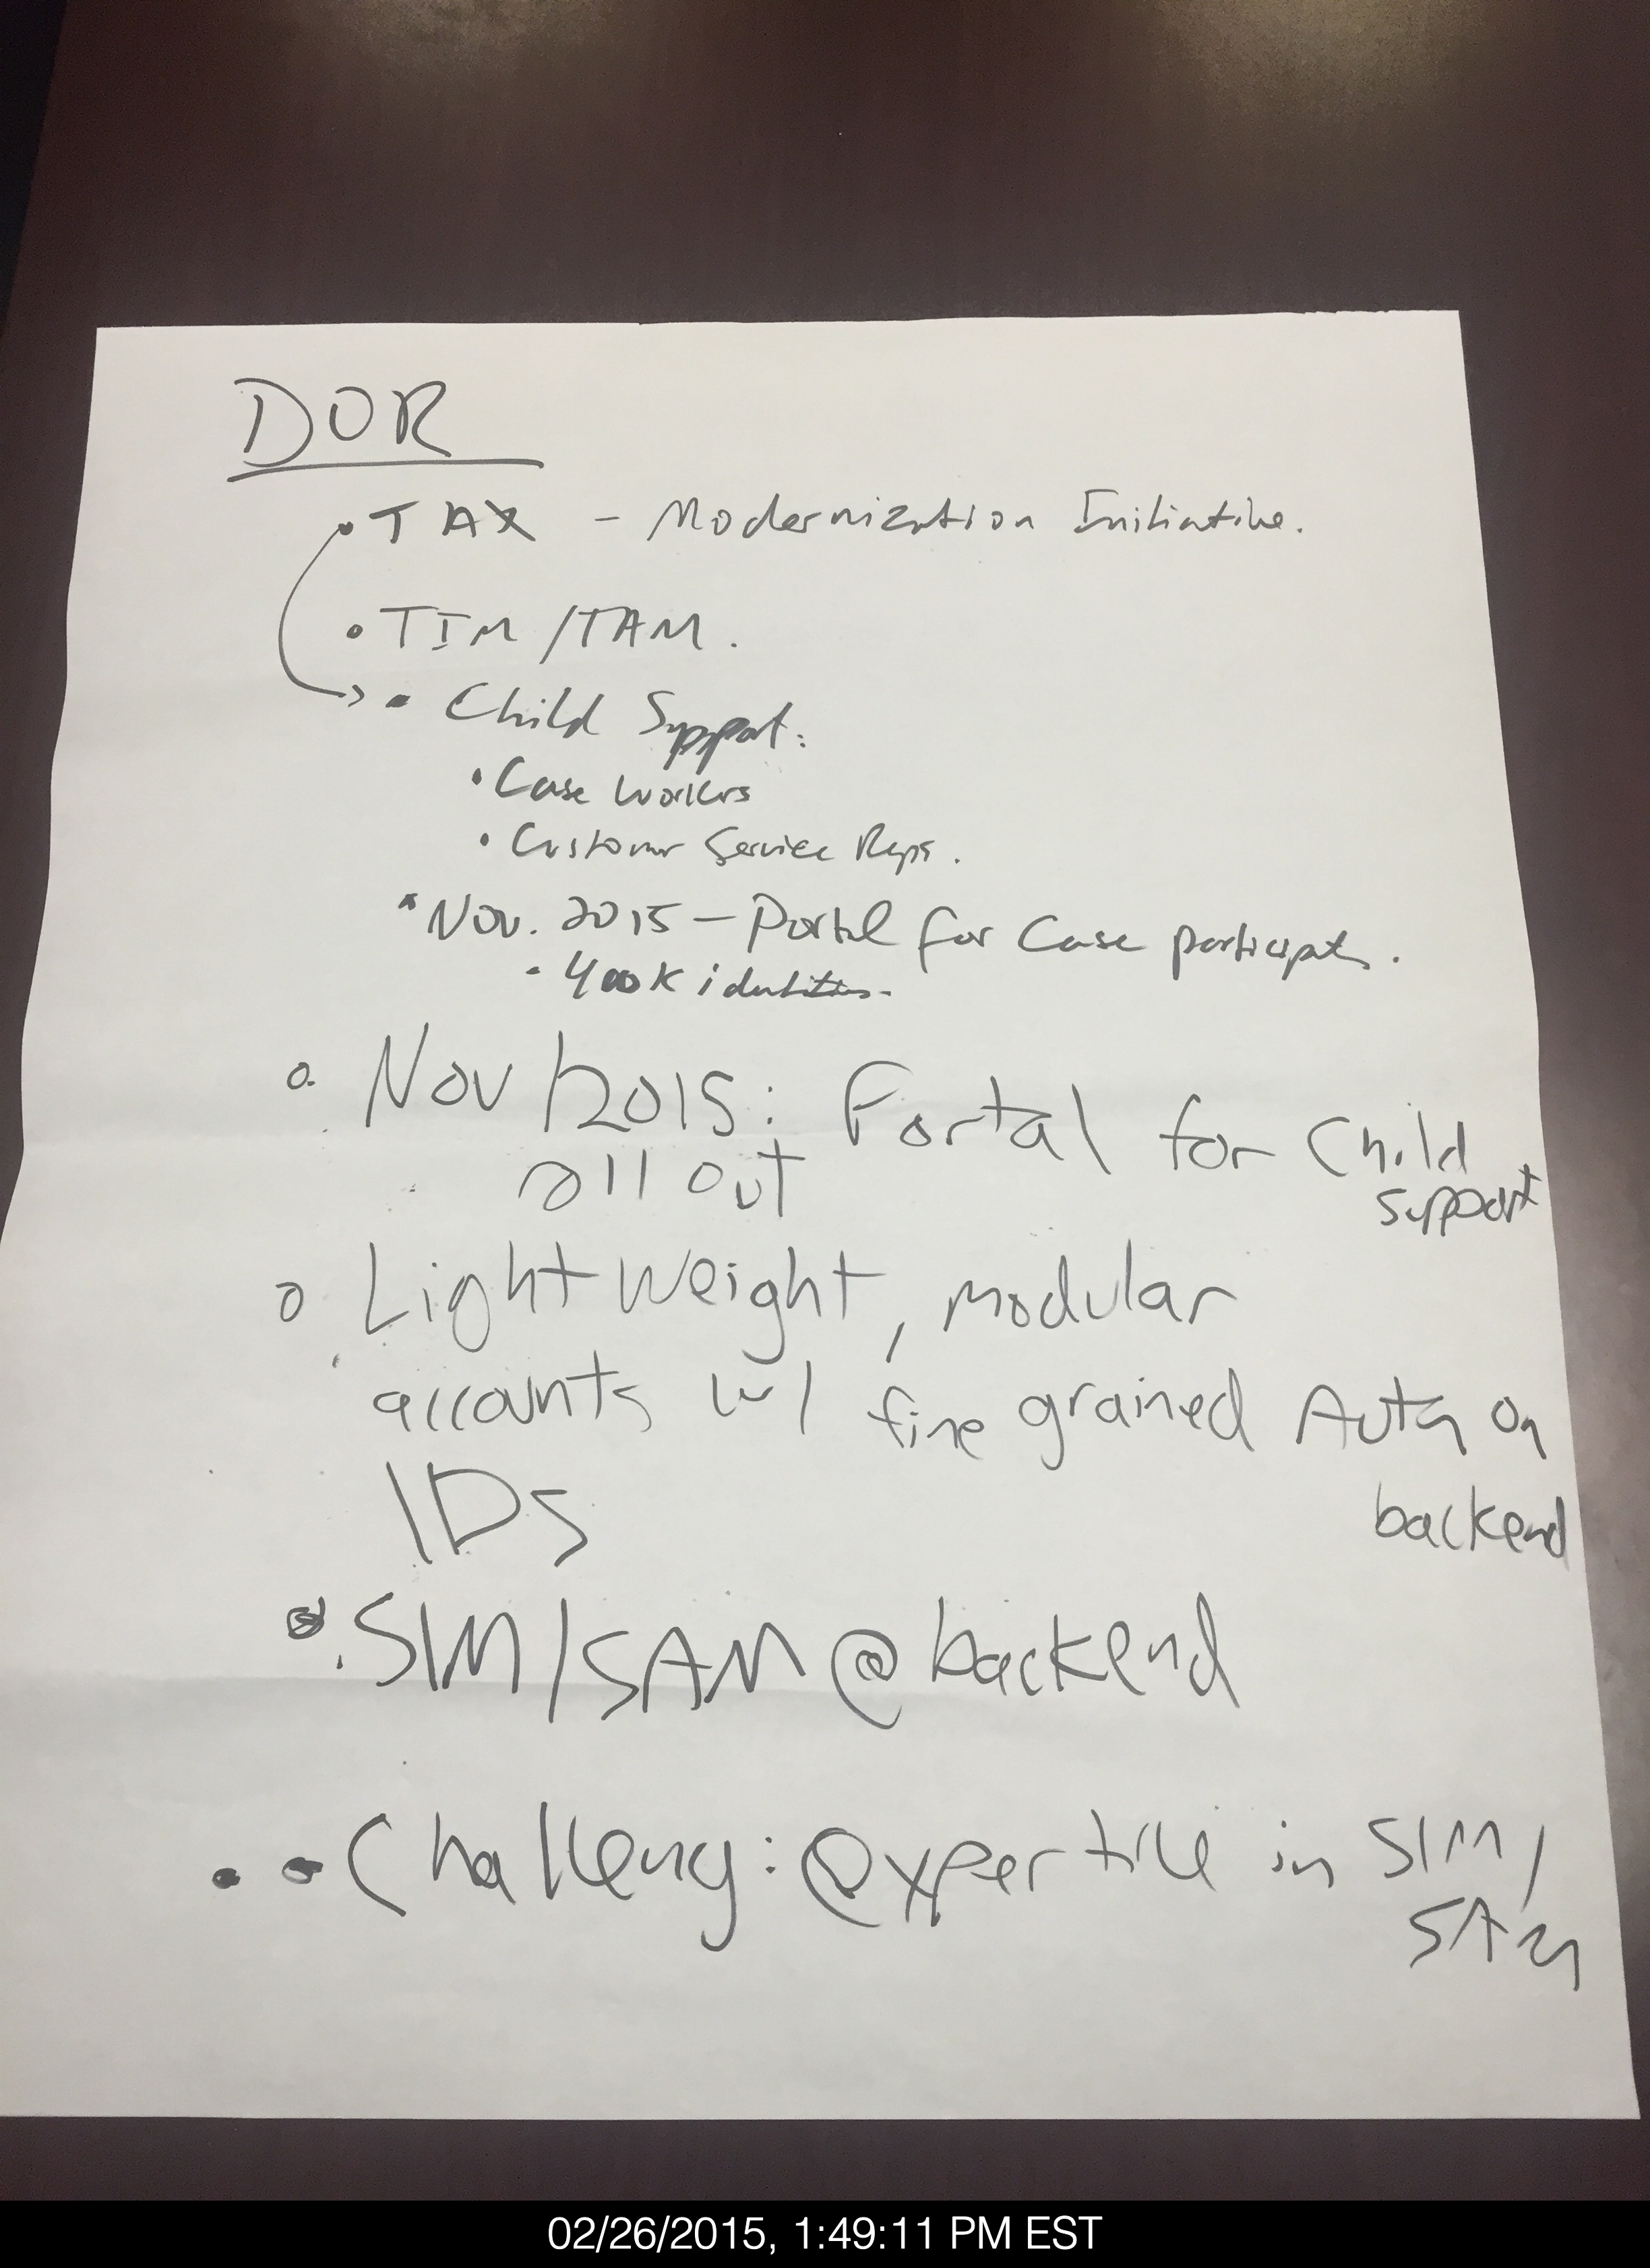 DOR
• TAX - Modernization Initiative.
• TIM/TAM.
• Child Support:
• Case workers
• Customer Service Reps.
• Nov. 2015 - Portal for Case participants.
- 400K identities.
o. Nov/2015: Portal for Child
all out support
o Lightweight, modular
accounts w/ fine grained Auth on
IDs backend
• SIM/SAM @ backend
• • Challeng: @expertise in SIM/
SAM
02/26/2015, 1:49:11 PM EST